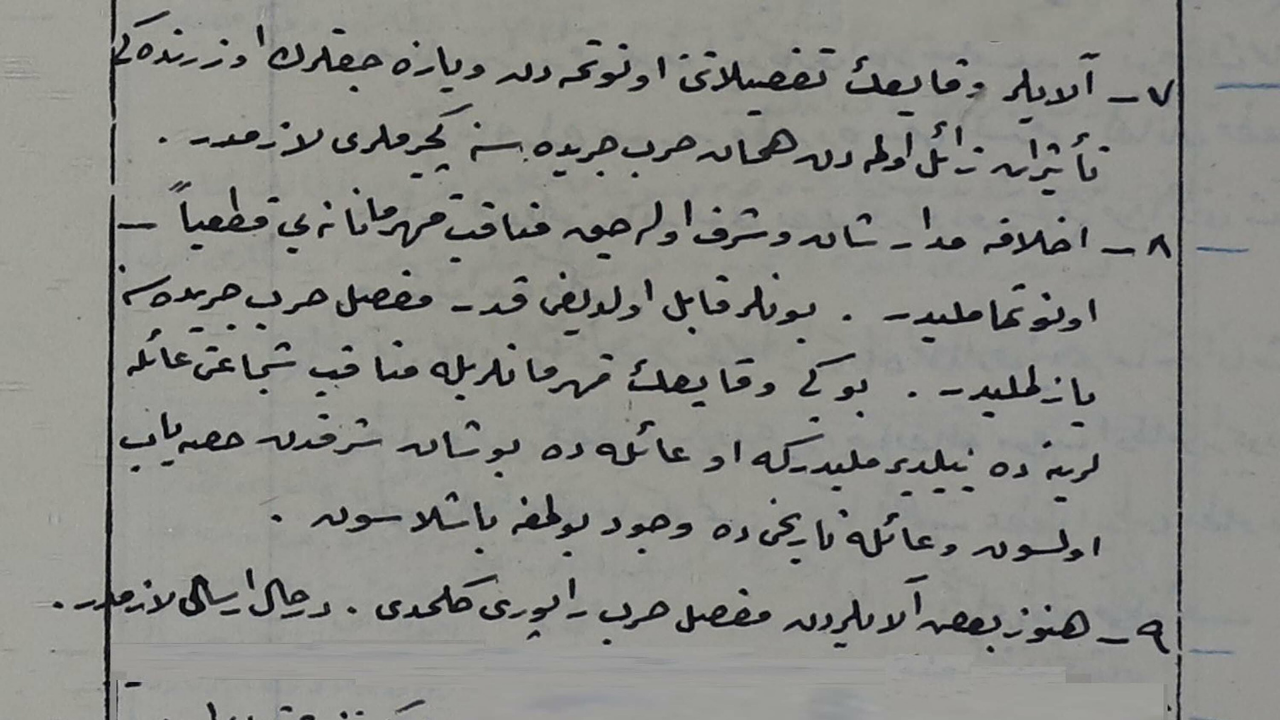 ٧ـ آلایلر وقایعك تفصیلاتنی اونوتمه‌دن ویازه‌جقلرك اوزرنده‌كی
تأثیرات زائل اولمه‌دن همان حرب جریده‌سنه كچیرملری لازمدر .
٨ـ اخلافه مدار شان وشرف اوله‌جق مناقب قهرمانانه‌یی قطعیاً ـ
اونوتمامليدر . بونلر قابل اولدیغی قدر مفصل حرب جریده‌سنه
یازلمليدر . بو كبی وقایعك قهرمانلریله مناقب شجاعتی عائله
لرینه ده بیلدیرملیدركه او عائله ده بو شان شرفدن حصه‌یاب
اولسون وعائله تاریخی ده وجود بولمغه باشلاسون .
٩ـ هنوز بعض آلایلردن مفصل حرب راپوری كلمدی . درحال ارسالی لازمدر .